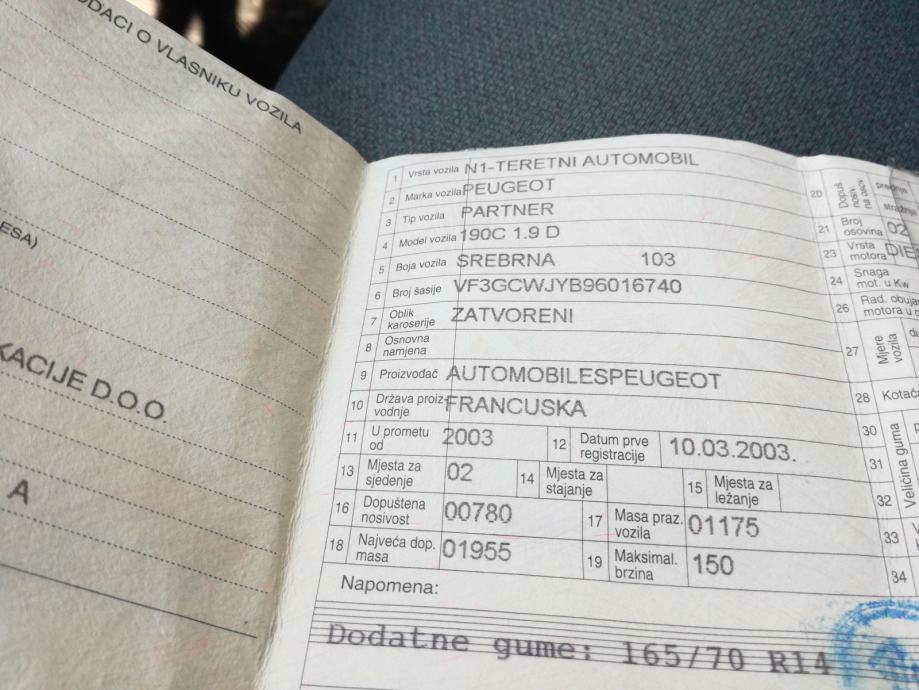 DACI O VLASNIKU VOZILA
ESA)
KACIJE D.O.O.
A
1 Vrsta vozila N1-TERETNI AUTOMOBIL
2 Marka vozila PEUGEOT
3 Tip vozila PARTNER
4 Model vozila 190C 1.9 D
5 Boja vozila SREBRNA 103
6 Broj šasije VF3GCWJYB96016740
7 Oblik karoserije ZATVORENI
8 Osnovna namjena
9 Proizvođač AUTOMOBILESPEUGEOT
10 Država proiz-vodnje FRANCUSKA
11 U prometu od 2003 12 Datum prve registracije 10.03.2003.
13 Mjesta za sjedenje 02 14 Mjesta za stajanje 15 Mjesta za ležanje
16 Dopuštena nosivost 00780 17 Masa praz. vozila 01175
18 Najveća dop. masa 01955 19 Maksimal. brzina 150
Napomena:
Dodatne gume: 165/70 R14
20 Dopuš. nosiv. na osov.
21 Broj osovina 02
23 Vrsta motora DIE
24 Snaga mot. u Kw
26 Rad. obuja motora u
27 Mjere vozila
28 Kotača
30
31
32
33
34
Veličina guma